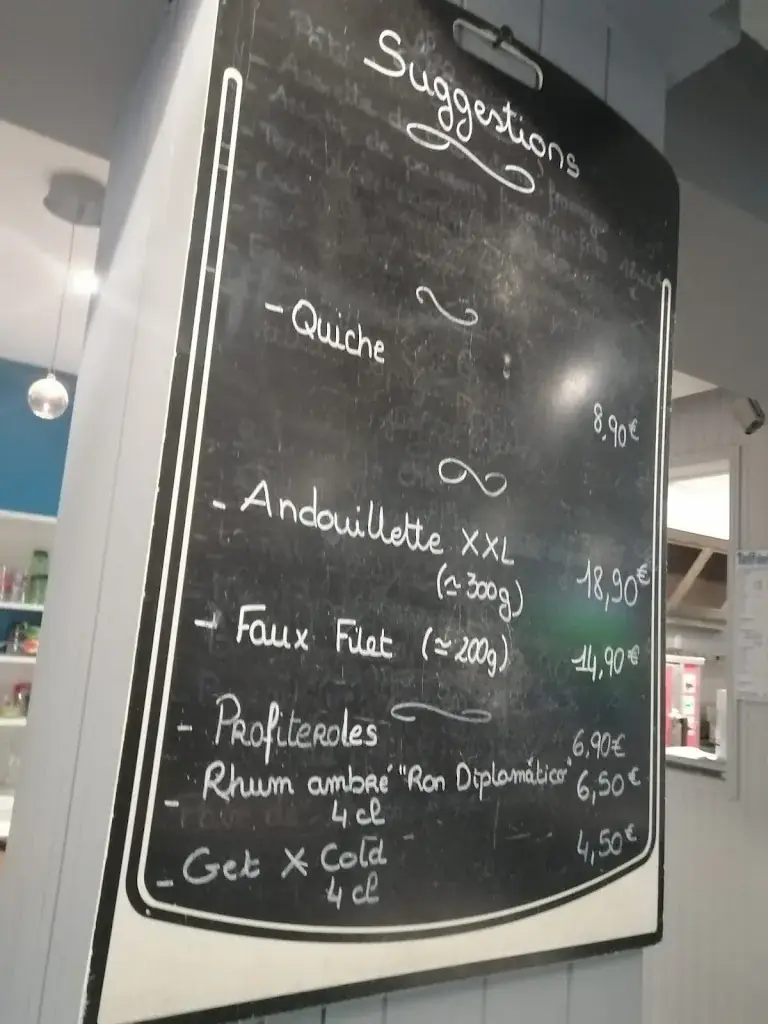 Suggestions
- Quiche
8.90€
- Andouillette XXL
(≃ 300g) 18,90€
- Faux Filet (≃ 200g) 14,90€
- Profiteroles 6,90€
- Rhum ambré "Ron Diplomático" 6,50€
4 cl
- Get X Cold 4,50€
4 cl